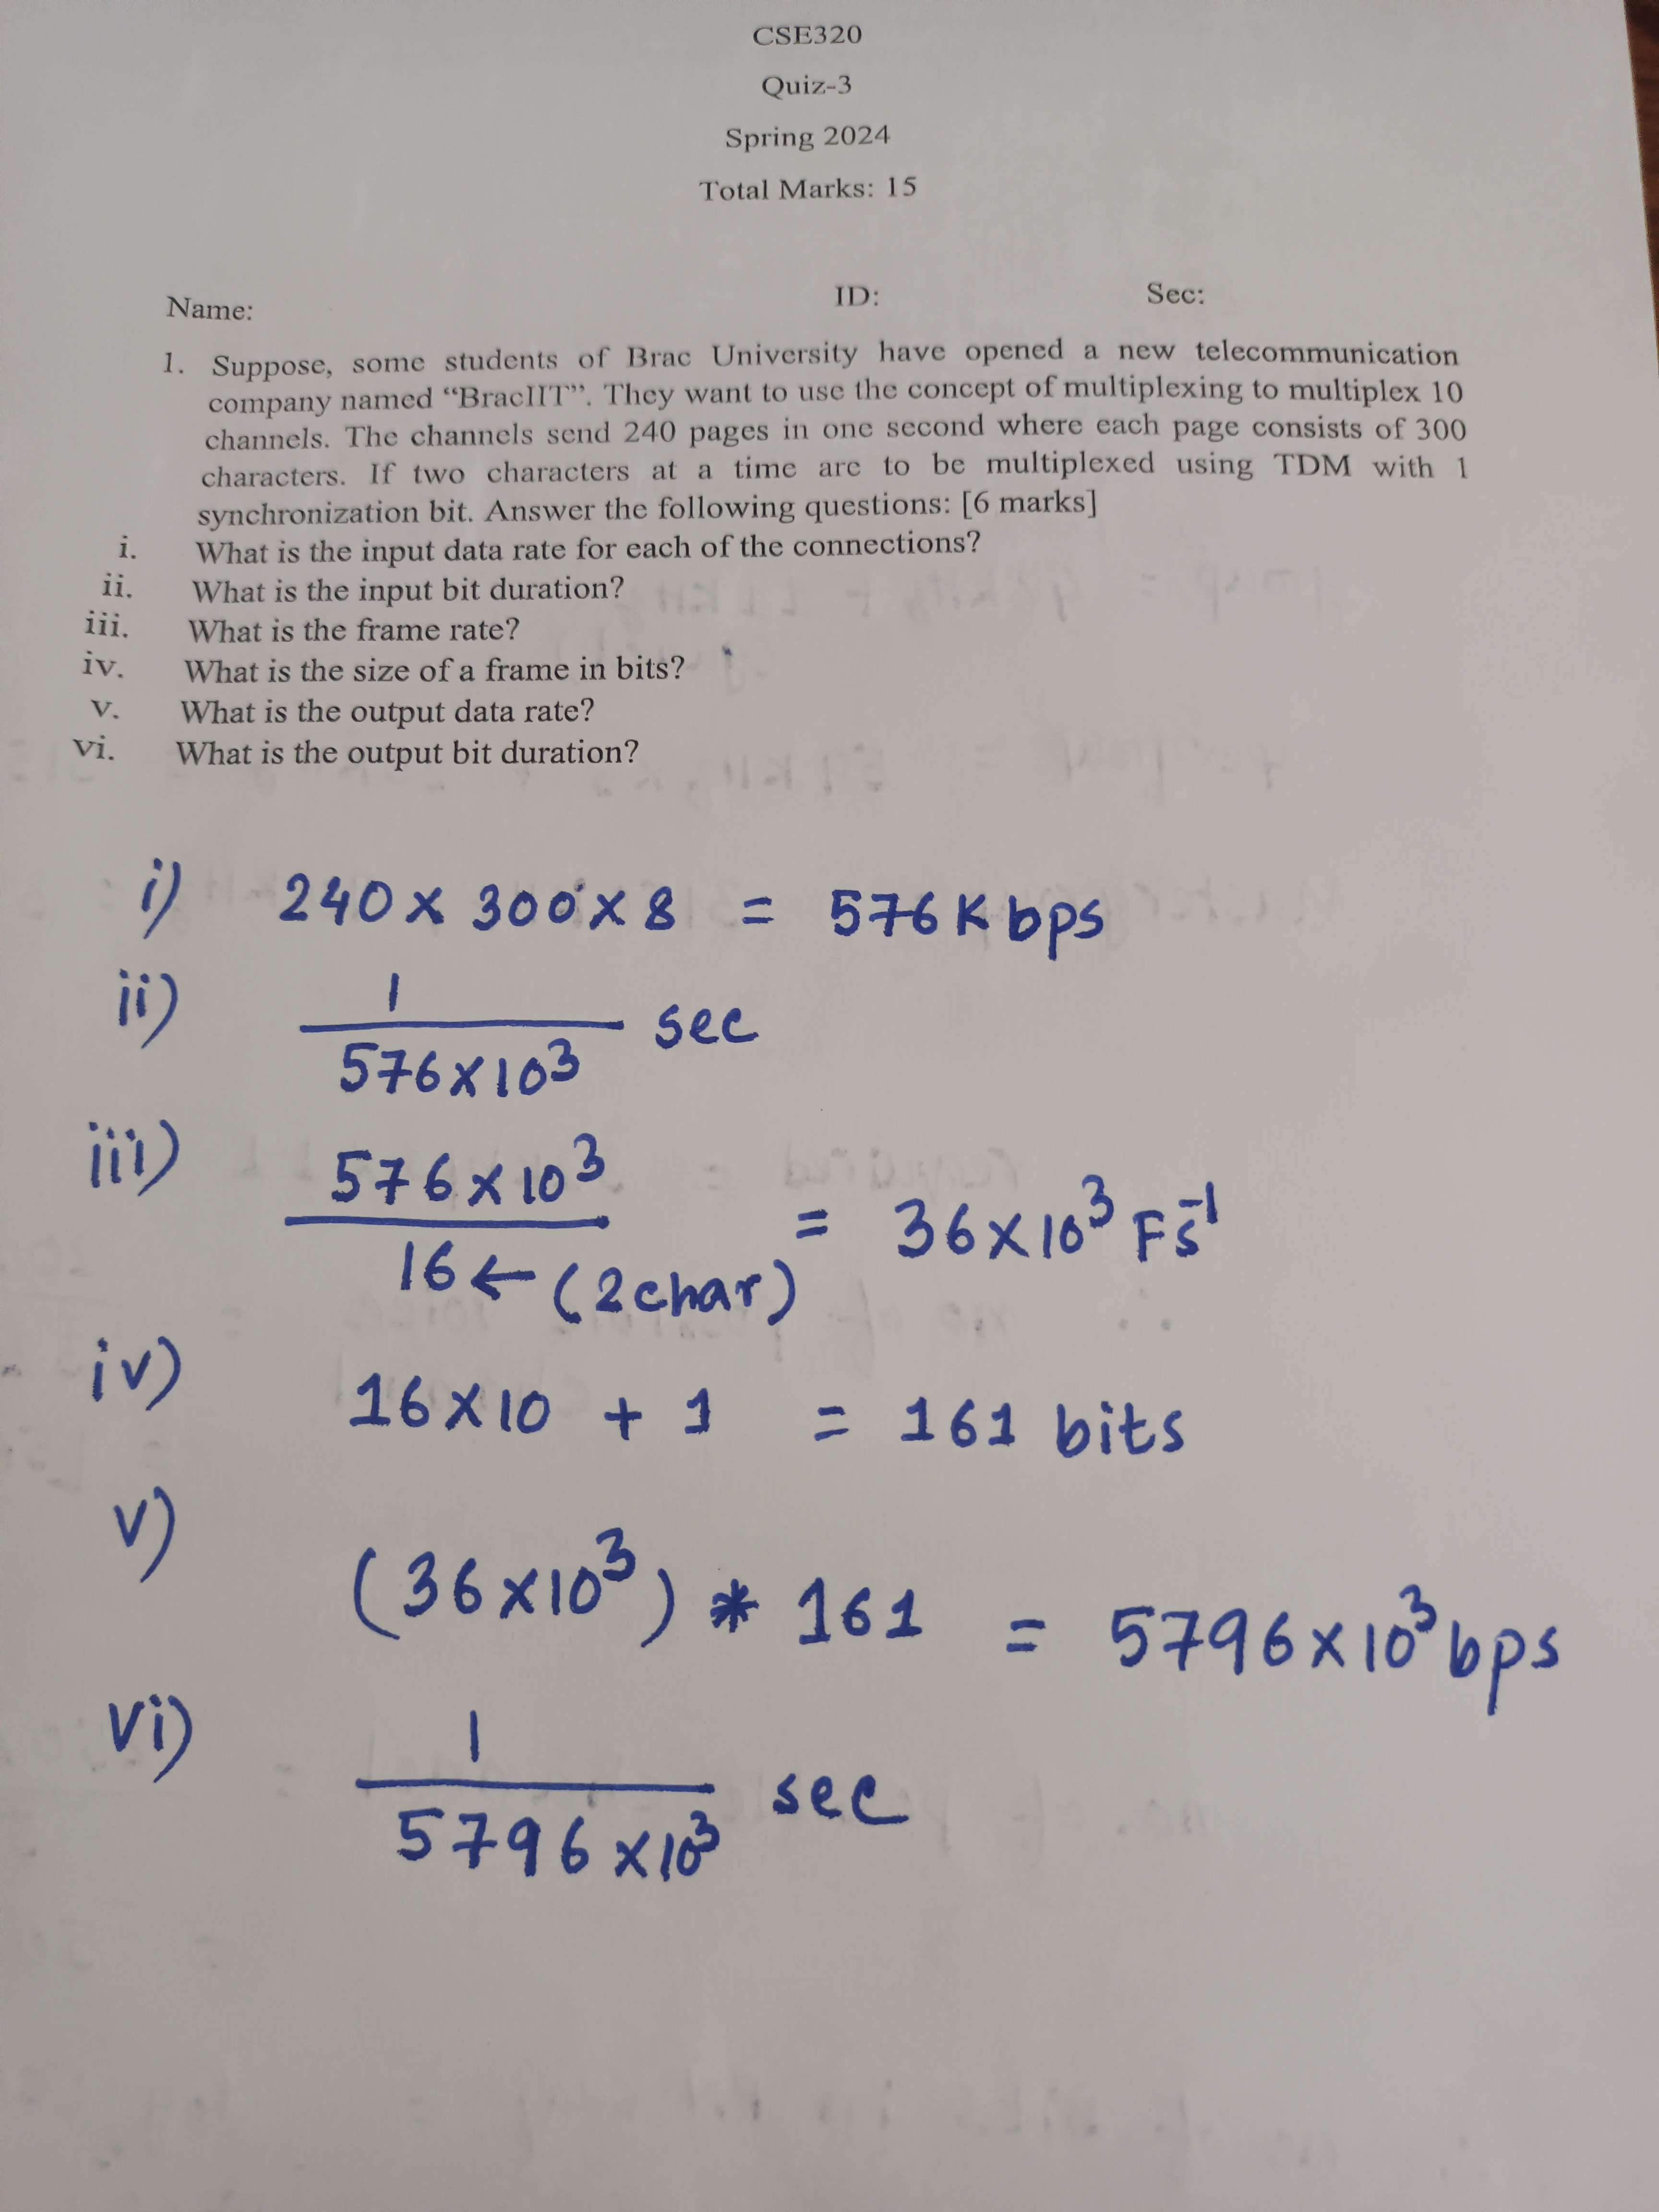 CSE320
Quiz-3
Spring 2024
Total Marks: 15
Name: ID: Sec:
1. Suppose, some students of Brac University have opened a new telecommunication
company named “BracIIT”. They want to use the concept of multiplexing to multiplex 10
channels. The channels send 240 pages in one second where each page consists of 300
characters. If two characters at a time are to be multiplexed using TDM with 1
synchronization bit. Answer the following questions: [6 marks]
i. What is the input data rate for each of the connections?
ii. What is the input bit duration?
iii. What is the frame rate?
iv. What is the size of a frame in bits?
v. What is the output data rate?
vi. What is the output bit duration?
i) 240 × 300 × 8 = 576 K bps
ii) 1
sec
576×10³
iii) 576×10³
= 36×10³ Fs⁻¹
16 ← (2char)
iv) 16×10 + 1 = 161 bits
v) (36×10³) * 161 = 5796×10³ bps
vi) 1
sec
5796×10³